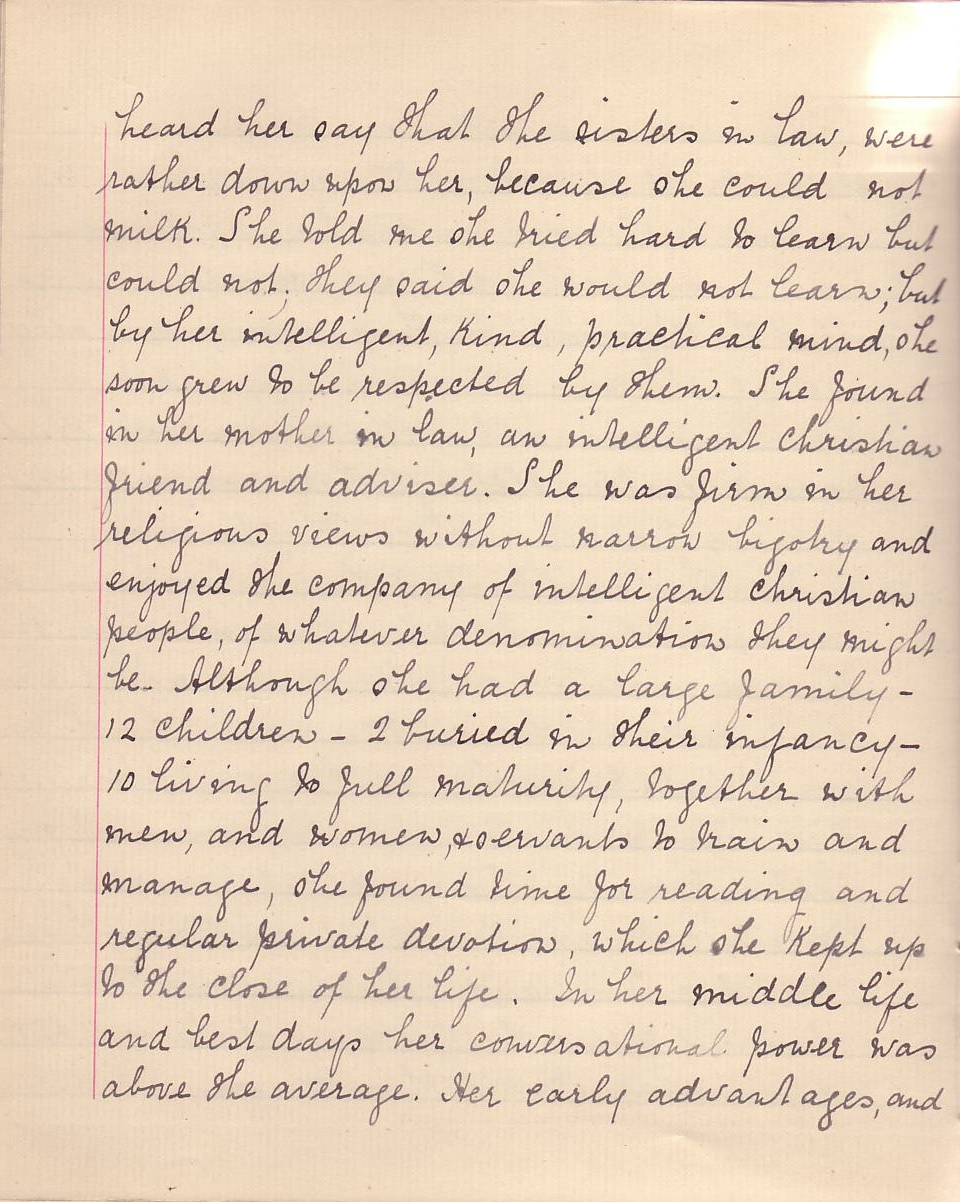 heard her say that the sisters in law, were
rather down upon her, because she could not
milk. She told me she tried hard to learn but
could not; they said she would not learn; but
by her intelligent, kind, practical mind, she
soon grew to be respected by them. She found
in her mother in law, an intelligent christian
friend and adviser. She was firm in her
religious views without narrow bigotry and
enjoyed the company of intelligent christian
people, of whatever denomination they might
be. Although she had a large family -
12 children - 2 buried in their infancy -
10 living to full maturity, together with
men, and women, & servants to train and
manage, she found time for reading and
regular private devotion, which she kept up
to the close of her life. In her middle life
and best days her conversational power was
above the average. Her early advantages, and